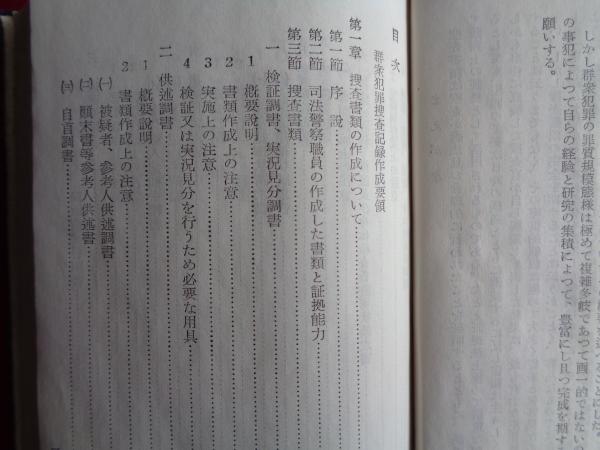 しかし群衆犯罪の罪質規模態様は極めて複雑多岐であつて画一的ではない
の事犯によつて自らの経験と研究の集積によつて、豊富にし且つ完成を期す
願いする。
目次
群衆犯罪捜査記録作成要領
第一章 捜査書類の作成について
第一節 序説
第二節 司法警察職員の作成した書類と証拠能力
第三節 捜査書類
一 検証調書、実況見分調書
1 概要説明
2 書類作成上の注意
3 実施上の注意
4 検証又は実況見分を行うため必要な用具
二 供述調書
1 概要説明
2 書類作成上の注意
㈠ 被疑者、参考人供述調書
㈡ 顛末書等参考人供述書
㈢ 自首調書